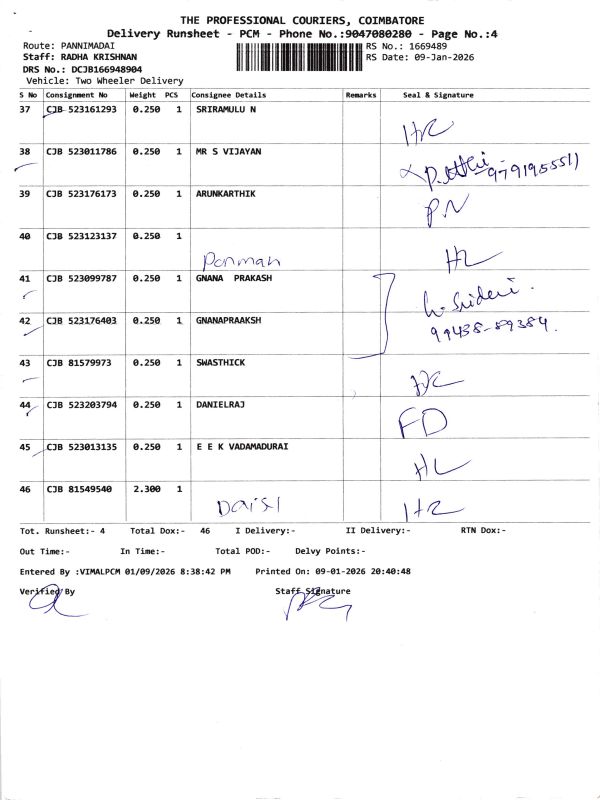 THE PROFESSIONAL COURIERS, COIMBATORE
Delivery Runsheet - PCM - Phone No.:9047080280 - Page No.:4
Route: PANNIMADAI
RS No.: 1669489
Staff: RADHA KRISHNAN
RS Date: 09-Jan-2026
DRS No.: DCJB166948904
Vehicle: Two Wheeler Delivery
S No Consignment No Weight PCS Consignee Details Remarks Seal & Signature
37 CJB 523161293 0.250 1 SRIRAMULU N
38 CJB 523011786 0.250 1 MR S VIJAYAN 9791955511
39 CJB 523176173 0.250 1 ARUNKARTHIK PN
40 CJB 523123137 0.250 1
41 CJB 523099787 0.250 1 GNANA PRAKASH
42 CJB 523176403 0.250 1 GNANAPRAAKSH 99438-89384.
43 CJB 81579973 0.250 1 SWASTHICK
44 CJB 523203794 0.250 1 DANIELRAJ FD
45 CJB 523013135 0.250 1 E E K VADAMADURAI HL
46 CJB 81549540 2.300 1 Daisy
Tot. Runsheet:- 4 Total Dox:- 46 I Delivery:- II Delivery:- RTN Dox:-
Out Time:- In Time:- Total POD:- Delvy Points:-
Entered By :VIMALPCM 01/09/2026 8:38:42 PM Printed On: 09-01-2026 20:40:48
Verified By Staff Signature